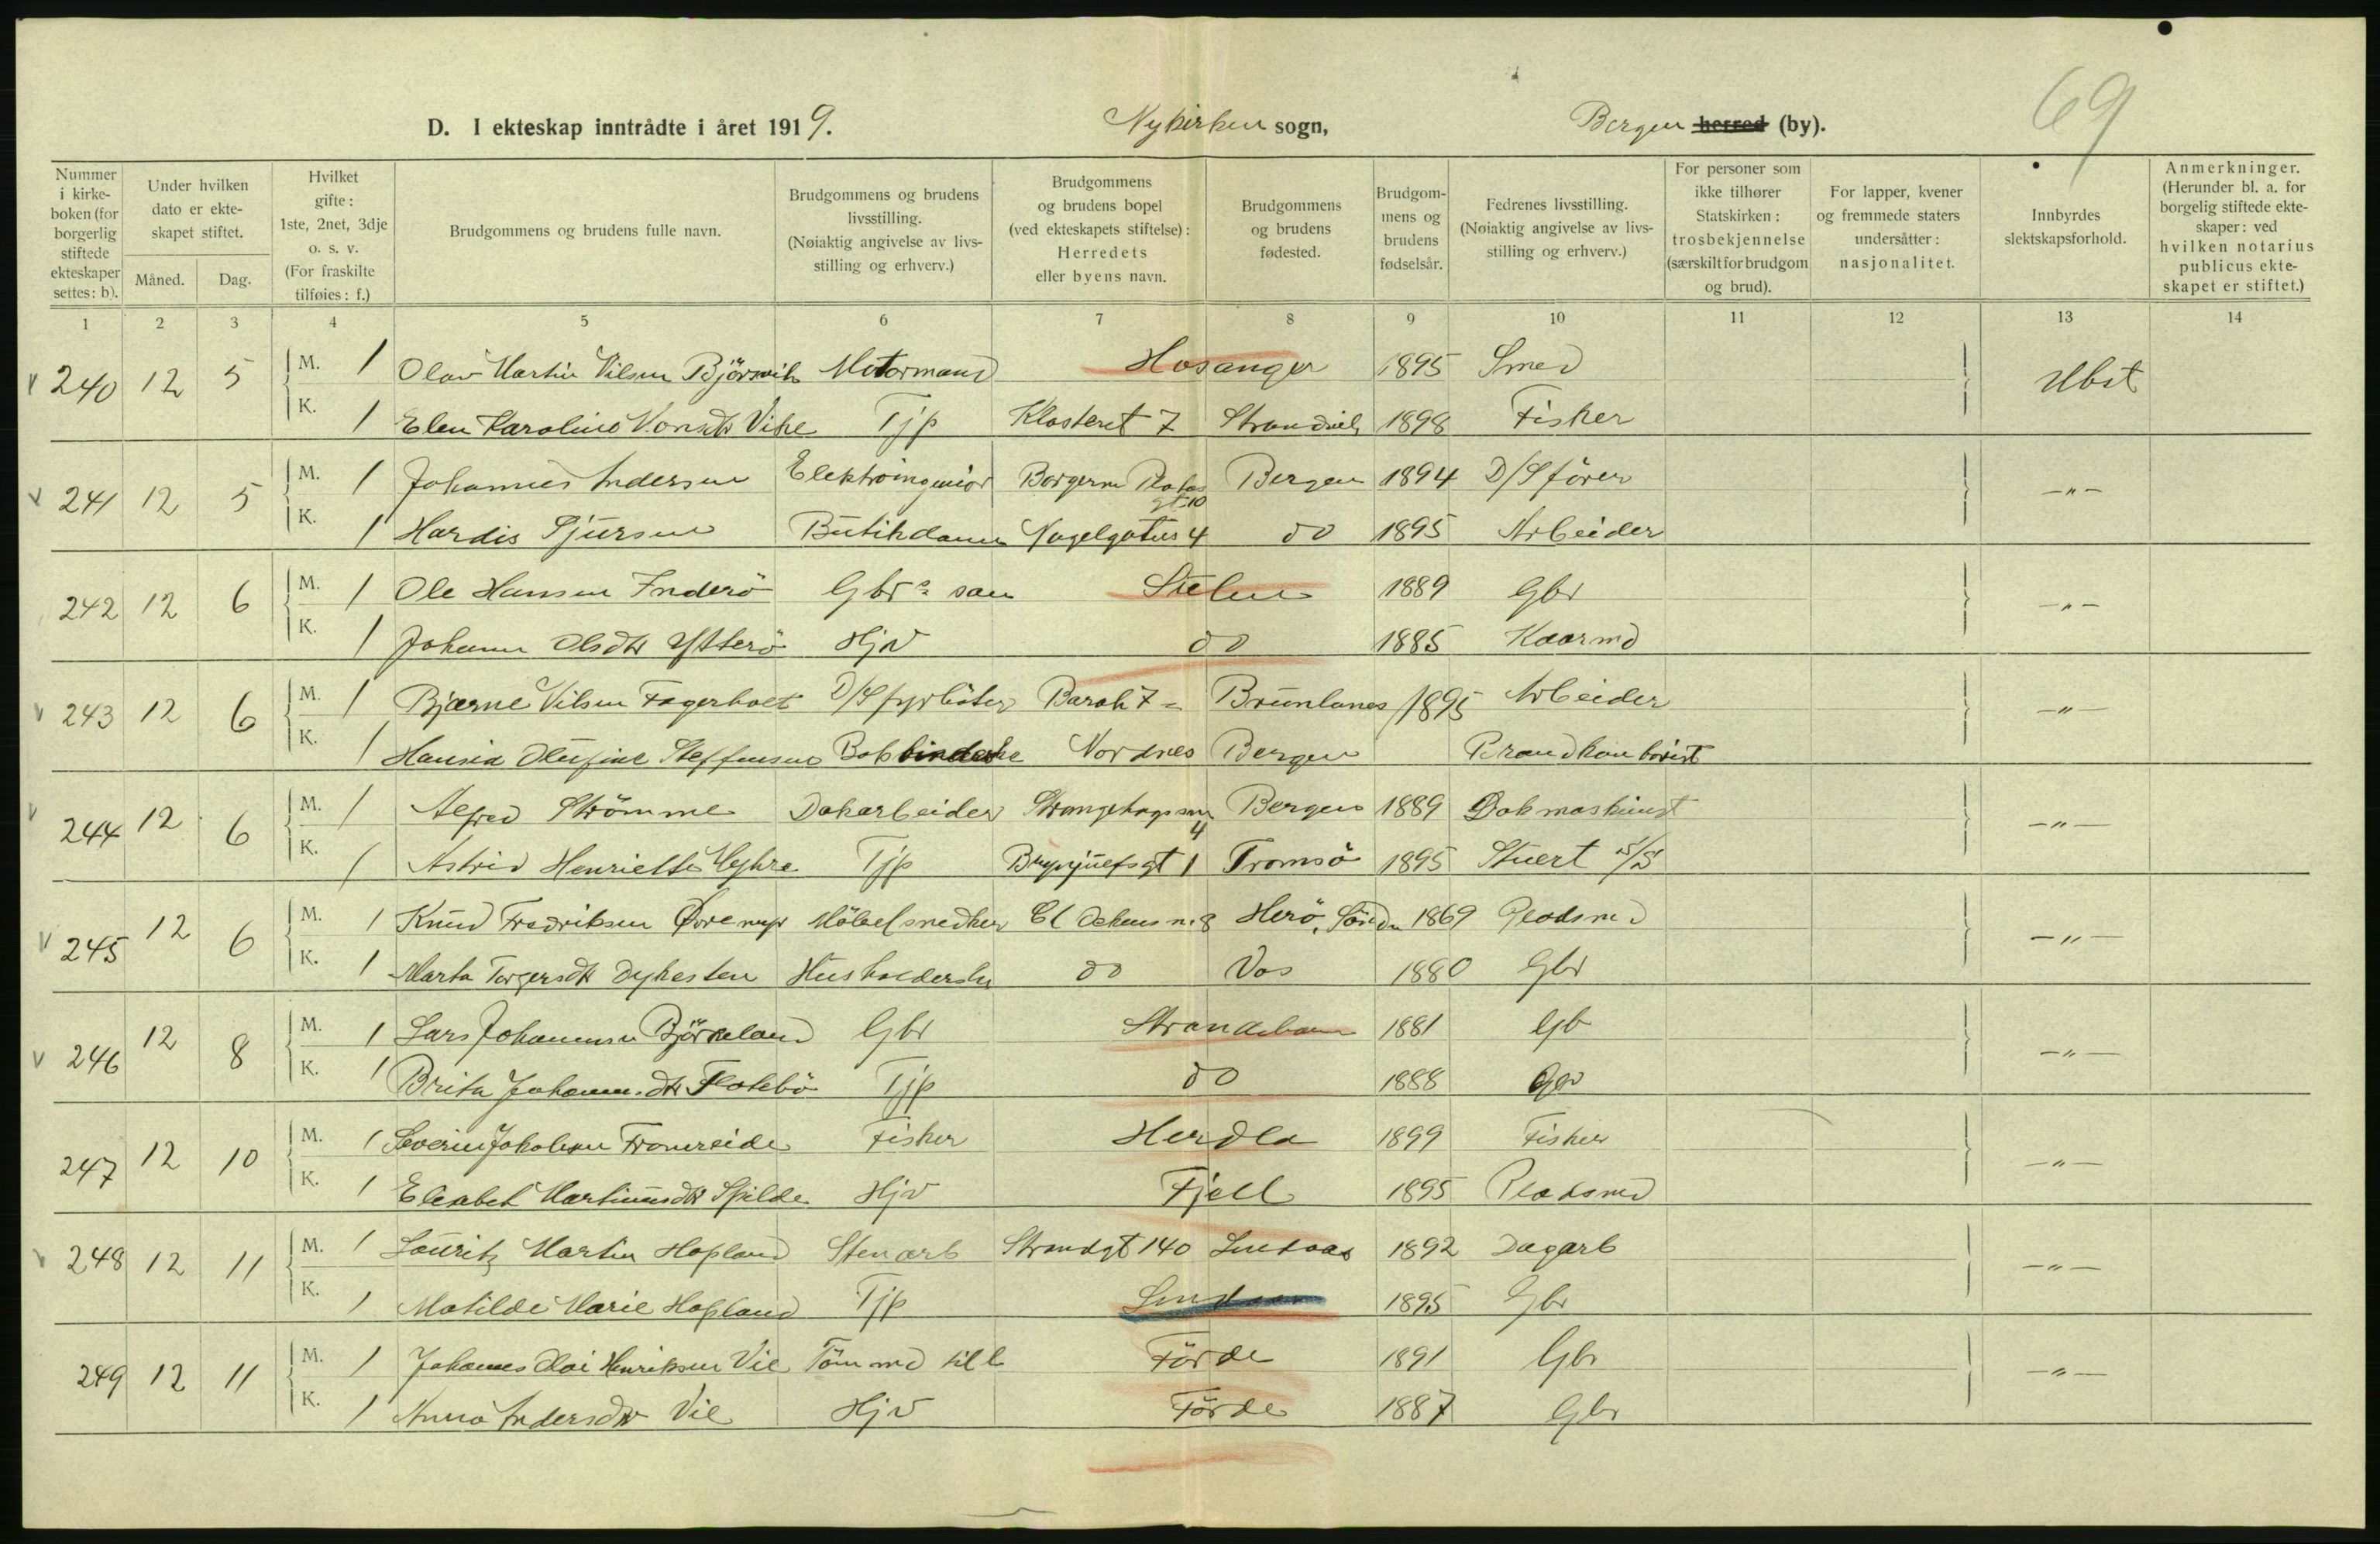 69
D. I ekteskap inntrådte i året 1919. Nykirken sogn, Bergen herred (by).
Nummer i kirkeboken (for borgerlig stiftede ekteskaper settes: b).
Under hvilken dato er ekteskapet stiftet.
Måned. Dag.
Hvilket gifte: 1ste, 2net, 3dje o. s. v. (For fraskilte tilføies: f.)
Brudgommens og brudens fulle navn.
Brudgommens og brudens livsstilling. (Nøiaktig angivelse av livsstilling og erhverv.)
Brudgommens og brudens bopel (ved ekteskapets stiftelse): Herredets eller byens navn.
Brudgommens og brudens fødested.
Brudgommens og brudens fødselsår.
Fedrenes livsstilling. (Nøiaktig angivelse av livsstilling og erhverv.)
For personer som ikke tilhører Statskirken: trosbekjennelse (særskilt for brudgom og brud).
For lapper, kvener og fremmede staters undersåtter: nasjonalitet.
Innbyrdes slektskapsforhold.
Anmerkninger. (Herunder bl. a. for borgelig stiftede ekteskaper: ved hvilken notarius publicus ekteskapet er stiftet.)
1 2 3 4 5 6 7 8 9 10 11 12 13 14
240 12 5 M. 1 Olav Martin Nilsen Björsvik Motormand Hosanger 1895 Smed Ubst
K. 1 Elen Karoline Monsdtr Vike Tjp Klosteret 7 Strandvik 1898 Fisker
241 12 5 M. 1 Johannes Andersen Elektroingeniör Borgerm Platos gt 10 Bergen 1894 D/S förer -"-
K. 1 Hardis Sjursen Butikdame Nagelgaten 4 do 1895 Arbeider
242 12 6 M. 1 Ole Hansen Inderö Gbrs sön Stolen 1889 Gbr -"-
K. 1 Johanne Olsdtr Ytterö Hjv do 1885 Kaarmd
243 12 6 M. 1 Bjarne Nilsen Fagerholt D/S fyrböter Barak 7 Brunlanes 1895 Arbeider -"-
K. 1 Hansia Olufine Steffensen Bokbinderske Nordnes Bergen Brandkonstabel
244 12 6 M. 1 Alfred Strömme Dokarbeider Strangehagen 4 Bergen 1889 Dokmaskinist -"-
K. 1 Astrid Henriette Myhre Tjp gt 1 Tromsö 1895 Stuert D/S
245 12 6 M. 1 Knud Fredriksen Øvre Möbelsnedker Cl Ockens n. 8 Herö, Söndm 1869 Pladsmd -"-
K. 1 Marta Torgersdtr Dykesten Husholderske do Vos 1880 Gbr
246 12 8 M. 1 Lars Johannesen Björneland Gbr Strandebarm 1881 Gb -"-
K. 1 Brita Johannesdtr Flatebö Tjp do 1888 Gbr
247 12 10 M. 1 Severin Jakobsen Framreide Fisker Herdla 1899 Fisker -"-
K. 1 Elisabet Martinusdtr Spilde Hjv Fjell 1895 Pladsmd
248 12 11 M. 1 Lauritz Martin Hopland Stenarb Strandgt 140 Lindaas 1892 Dagarb -"-
K. 1 Matilde Marie Hopland Tjp Lindaas 1895 Gbr
249 12 11 M. 1 Johannes Henriksen Vie Tömmd Förde 1891 Gbr -"-
K. 1 Anna Andersdtr Vie Hjv Förde 1887 Gbr